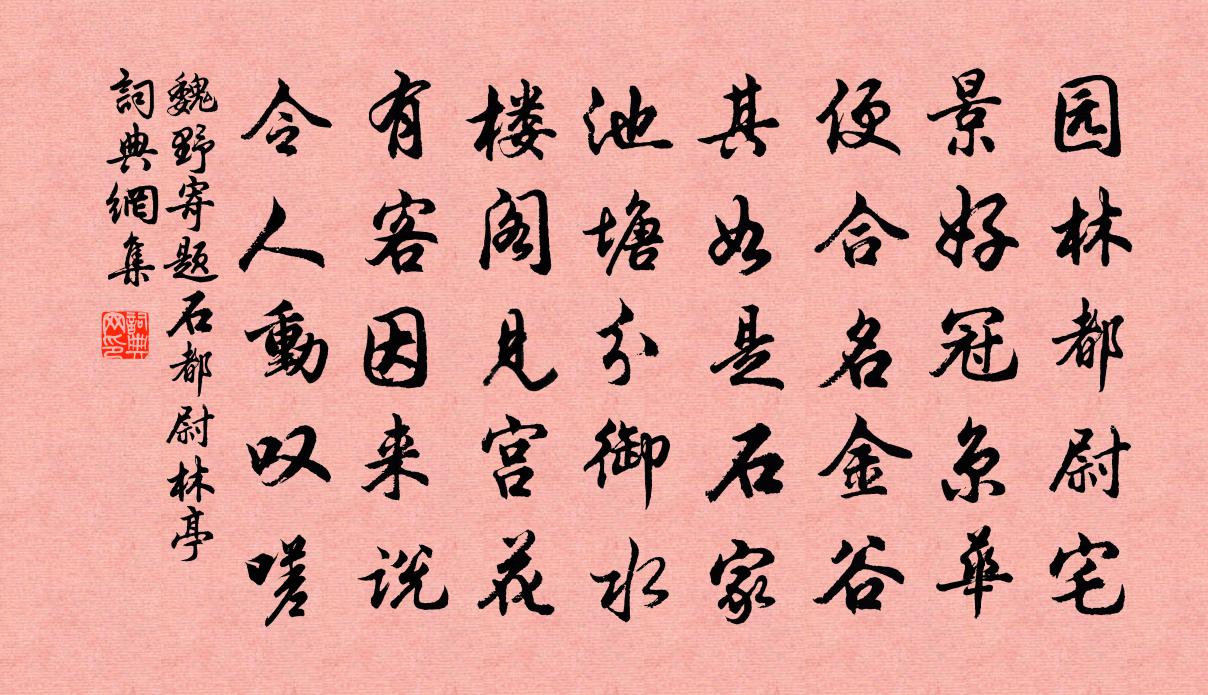 园林都尉宅
景好冠京华
便合名金谷
其如是石家
池塘分御水
楼阁见宫花
有客因来说
令人動叹嗟
魏野寄题石都尉林亭
詞典網集